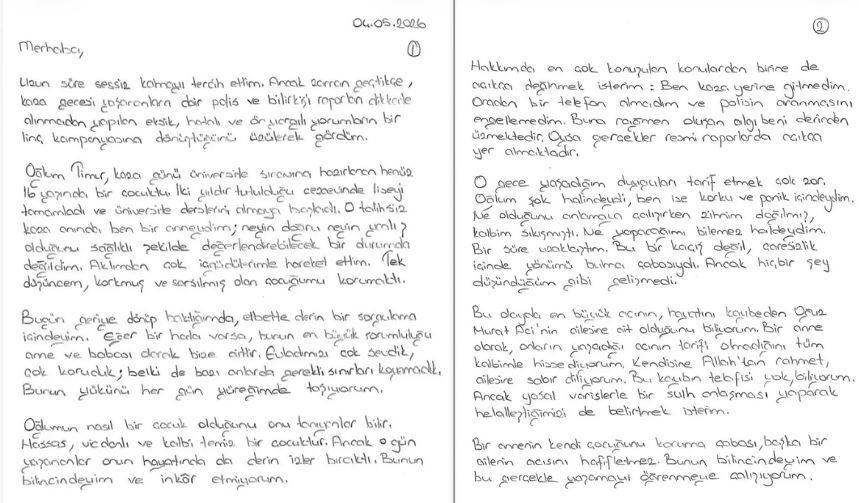 04.05.2026
①
Merhaba,
Uzun süre sessiz kalmayı tercih ettim. Ancak zaman geçtikçe,
kaza gecesi yaşananlara dair polis ve bilirkişi raporları dikkate
alınmadan yapılan eksik, hatalı ve ön yargılı yorumların bir
linç kampanyasına dönüştüğünü üzülerek gördüm.
Oğlum Timur, kaza günü üniversite sınavına hazırlanan henüz
16 yaşında bir çocuktu. İki yıldır tutulduğu cezaevinde liseyi
tamamladı ve üniversite dersleri almaya başladı. O talihsiz
kaza anında ben bir anneydim; neyin doğru neyin yanlış
olduğunu sağlıklı şekilde değerlendirebilecek bir durumda
değildim. Aklımdan çok içgüdülerimle hareket ettim. Tek
düşüncem, korkmuş ve sarsılmış olan çocuğumu korumaktı.
Bugün geriye dönüp baktığımda, elbette derin bir sorgulama
içindeyim. Eğer bir hata varsa, bunun en büyük sorumluluğu
anne ve babası olarak bize aittir. Evladımızı çok sevdik,
çok koruduk; belki de bazı anlarda gerekli sınırları koyamadık.
Bunun yükünü her gün yüreğimde taşıyorum.
Oğlumun nasıl bir çocuk olduğunu onu tanıyanlar bilir.
Hassas, vicdanlı ve kalbi temiz bir çocuktur. Ancak o gün
yaşananlar onun hayatında da derin izler bıraktı. Bunun
bilincindeyim ve inkâr etmiyorum.
②
Hakkımda en çok konuşulan konulardan birine de
açıkça değinmek isterim: Ben kaza yerine gitmedim.
Oradan bir telefon almadım ve polisin aranmasını
engellemedim. Buna rağmen oluşan algı beni derinden
üzmektedir. Oysa gerçekler resmi raporlarda açıkça
yer almaktadır.
O gece yaşadığım duyguları tarif etmek çok zor.
Oğlum şok halindeydi, ben ise korku ve panik içindeydim.
Ne olduğunu anlamaya çalışırken zihnim dağılmış,
kalbim sıkışmıştı. Ne yapacağımı bilemez haldeydim.
Bir süre uzaklaştım. Bu bir kaçış değil, çaresizlik
içinde yönümü bulma çabasıydı. Ancak hiçbir şey
düşündüğüm gibi gelişmedi.
Bu olayda en büyük acının, hayatını kaybeden Oğuz
Murat Aci'nin ailesine ait olduğunu biliyorum. Bir anne
olarak, onların yaşadığı acının tarifi olmadığını tüm
kalbimle hissediyorum. Kendisine Allah'tan rahmet,
ailesine sabır diliyorum. Bu kaybın telafisi yok, biliyorum.
Ancak yasal varislerle bir sulh anlaşması yaparak
helalleştiğimizi de belirtmek isterim.
Bir annenin kendi çocuğunu koruma çabası, başka bir
ailenin acısını hafifletmez. Bunun bilincindeyim ve
bu gerçekle yaşamayı öğrenmeye çalışıyorum.